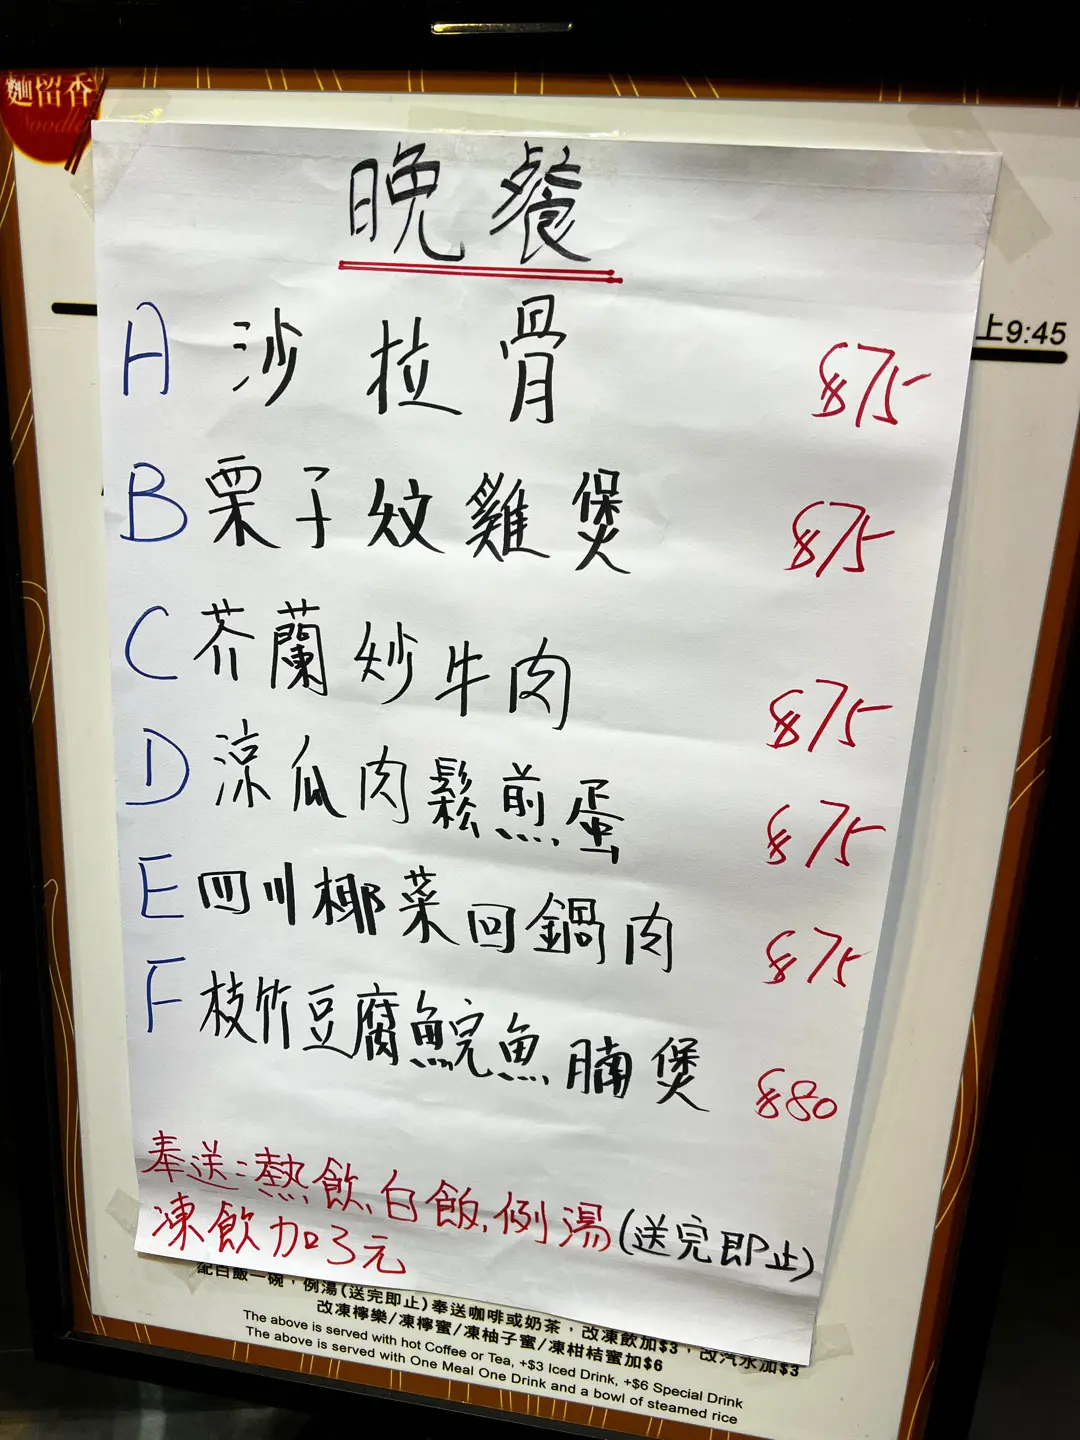 麵留香
Noodle
晚餐
上9:45
A 沙拉骨 $75
B 栗子炆雞煲 $75
C 芥蘭炒牛肉 $75
D 涼瓜肉鬆煎蛋 $75
E 四川椰菜回鍋肉 $75
F 枝竹豆腐鯇魚腩煲 $80
奉送:熱飲,白飯,例湯(送完即止)
凍飲加3元
配白飯一碗，例湯(送完即止)奉送咖啡或奶茶，改凍飲加$3，改汽水加$3
改凍檸樂/凍檸蜜/凍柚子蜜/凍柑桔蜜加$6
The above is served with hot Coffee or Tea, +$3 Iced Drink, +$6 Special Drink
The above is served with One Meal One Drink and a bowl of steamed rice